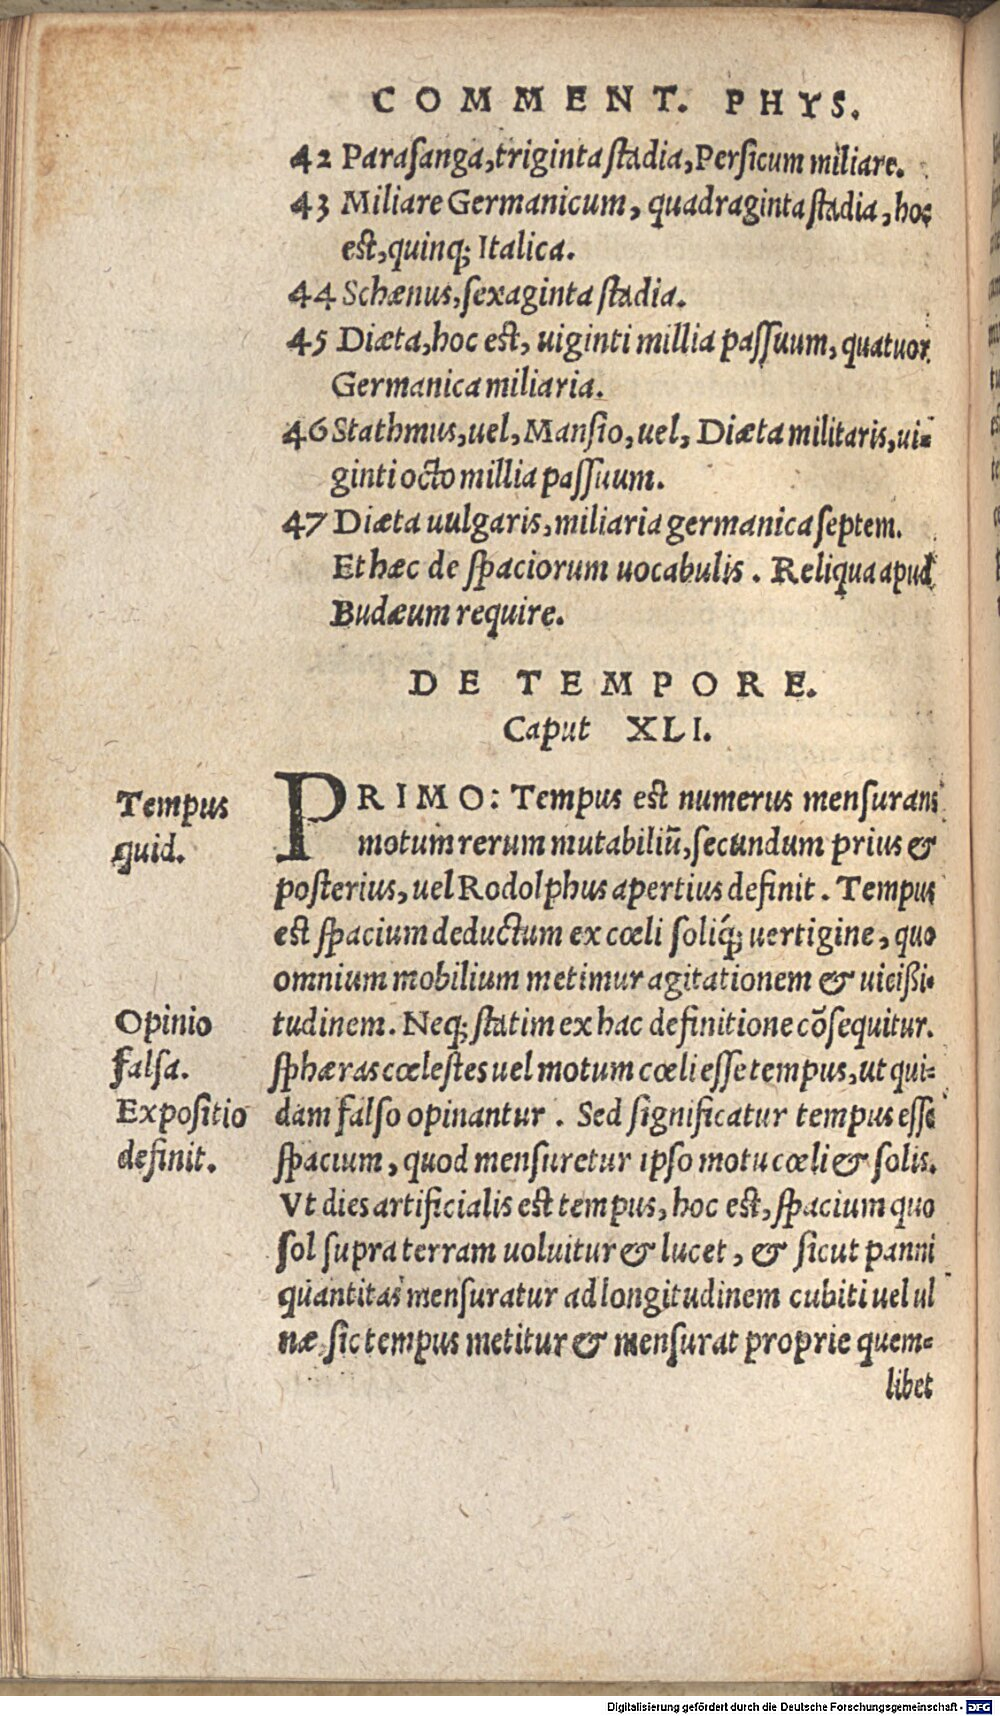 COMMENT. PHYS.
42 Parasanga, triginta stadia, Persicum miliare.
43 Miliare Germanicum, quadraginta stadia, hoc
est, quinq; Italica.
44 Schænus, sexaginta stadia.
45 Diæta, hoc est, uiginti millia passuum, quatuor
Germanica miliaria.
46 Stathmus, uel, Mansio, uel, Diæta militaris, ui=
ginti octo millia passuum.
47 Diæta uulgaris, miliaria germanica septem.
Et hæc de spaciorum uocabulis. Reliqua apud
Budæum require.
DE TEMPORE.
Caput XLI.
Tempus
quid.
PRIMO: Tempus est numerus mensurans
motum rerum mutabiliũ, secundum prius &
posterius, uel Rodolphus apertius definit. Tempus
est spacium deductum ex cœli soliq́; uertigine, quo
omnium mobilium metimur agitationem & uicißi-
Opinio
falsa.
Expositio
definit.
tudinem. Neq; statim ex hac definitione cõsequitur.
sphæras cœlestes uel motum cœli esse tempus, ut qui=
dam falso opinantur. Sed significatur tempus esse
spacium, quod mensuretur ipso motu cœli & solis.
Vt dies artificialis est tempus, hoc est, spacium quo
sol supra terram uoluitur & lucet, & sicut panni
quantitas mensuratur ad longitudinem cubiti uel ul
næ, sic tempus metitur & mensurat proprie quem=
libet
Digitalisierung gefördert durch die Deutsche Forschungsgemeinschaft - DFG